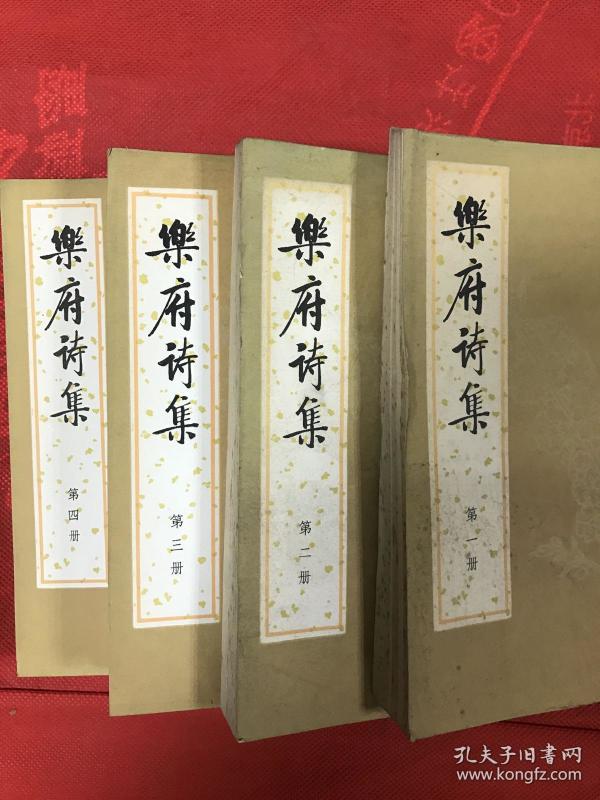 樂府诗集
第四册
樂府诗集
第三册
樂府诗集
第二册
樂府诗集
第一册
孔夫子旧书网
www.kongfz.com